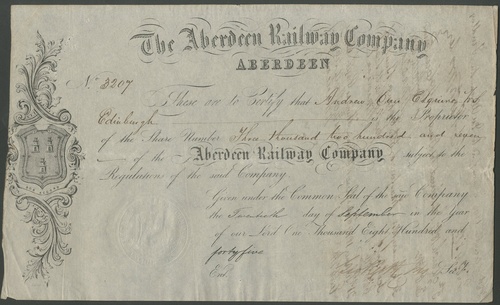 The Aberdeen Railway Company
ABERDEEN
No. 3207
These are to Certify that Andrew
Edinburgh is the Proprietor
of the Share Number Three thousand two hundred and seven
of the Aberdeen Railway Company, subject to the
Regulations of the said Company.
Given under the Common Seal of the said Company
the Twentieth day of September in the Year
of our Lord One Thousand Eight Hundred and
forty five
Ent.
Secy.
BON ACCORD